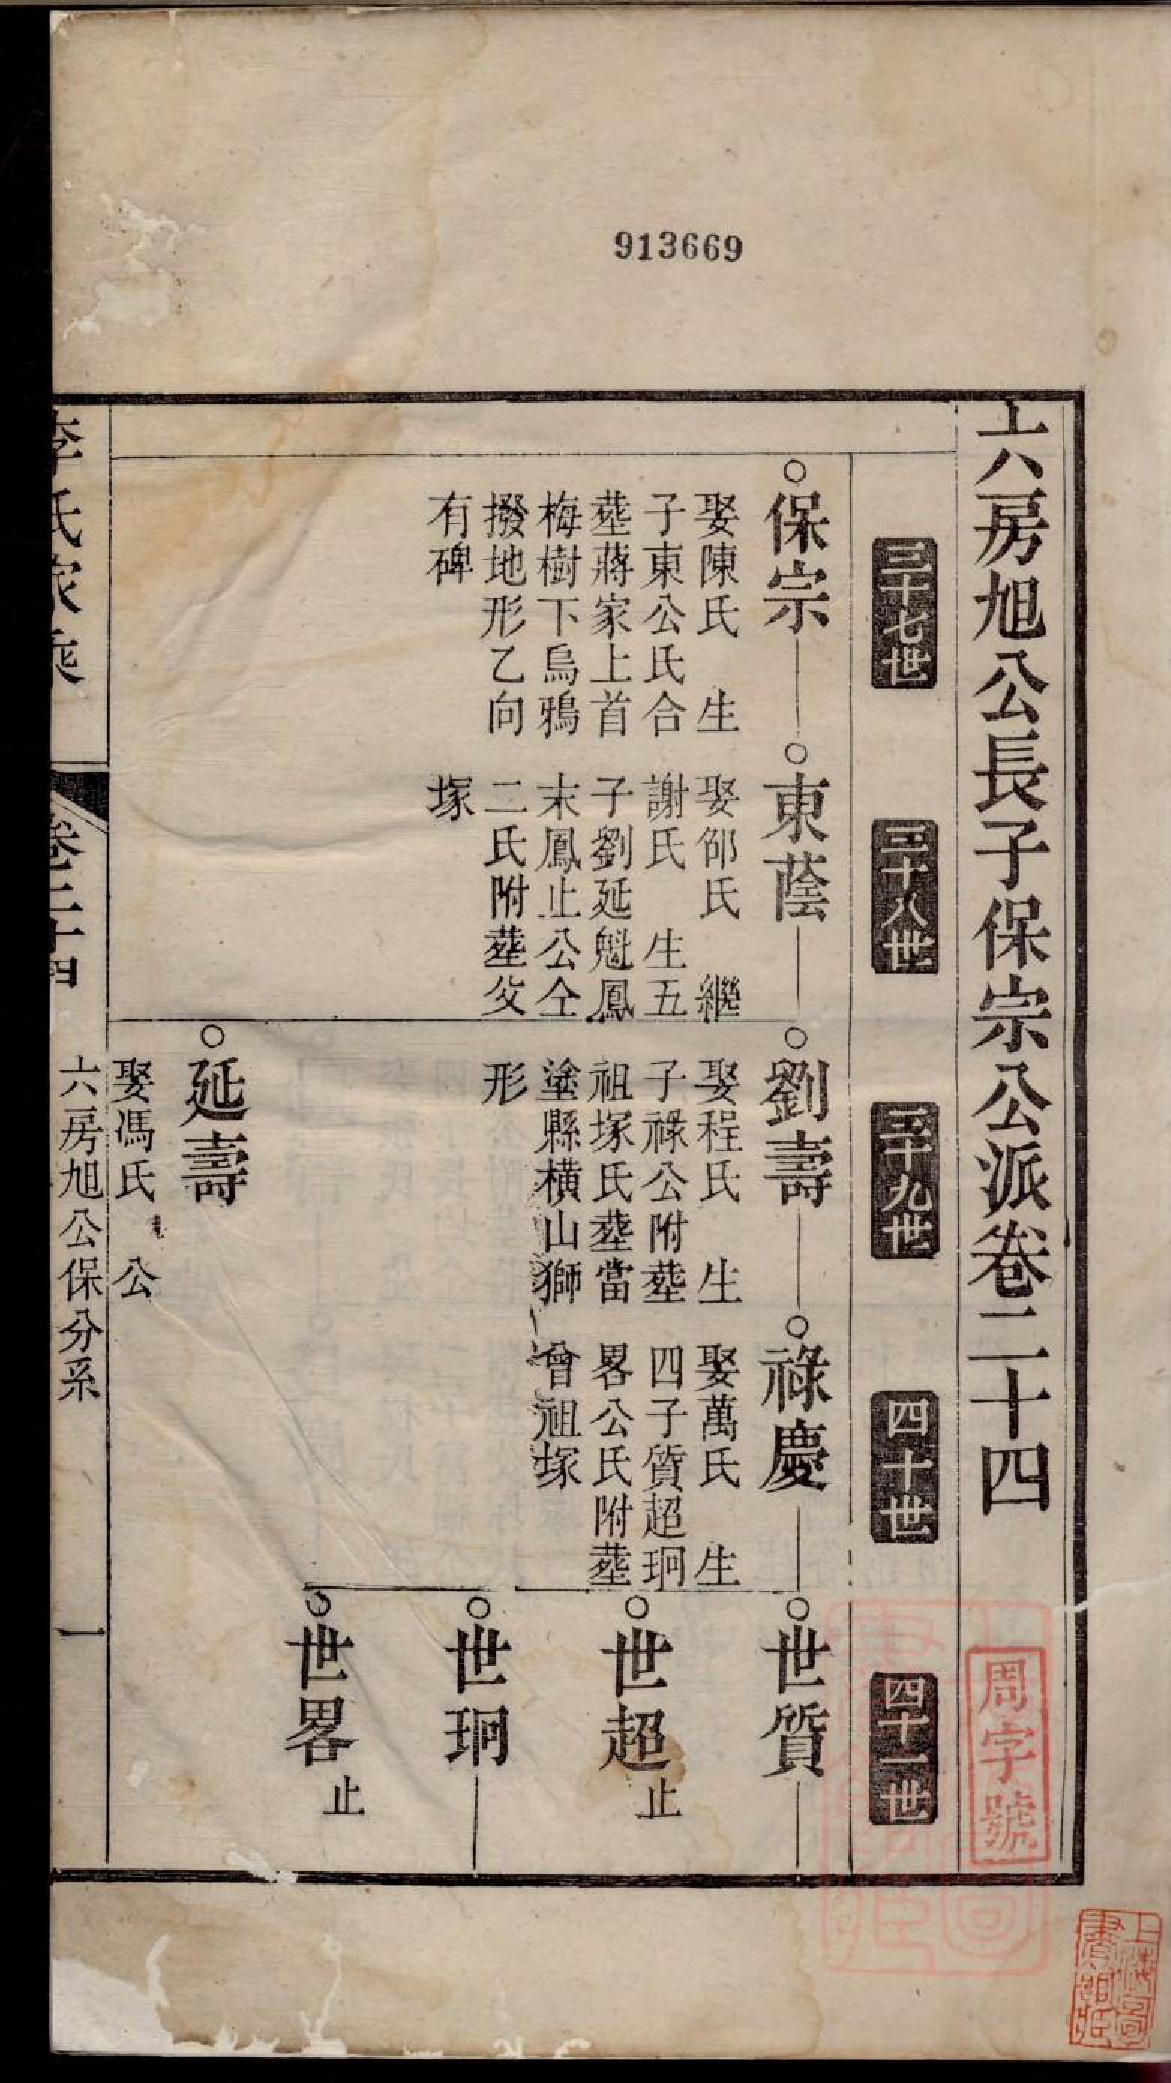 913669
六房旭公長子保宗公派卷二十四
周字號
三十七世
三十八世
三十九世
四十世
四十一世
保宗
娶陳氏 生
子東公氏合
塟蔣家上首
梅樹下烏鴉
撥地形乙向
有碑
東蔭
娶邰氏 繼
謝氏 生五
子劉延魁鳳
末鳳止公仝
二氏附塟父
塚
劉壽
娶程氏 生
子祿公附塟
祖塚氏塟當
塗縣橫山獅
形
祿慶
娶萬氏 生
四子質超珦
畧公氏附塟
曾祖塚
世質
世超 止
世珦
世畧 止
延壽
娶馮氏 公
李氏家乘
卷二十四
六房旭公保分系
一
上海圖書館藏